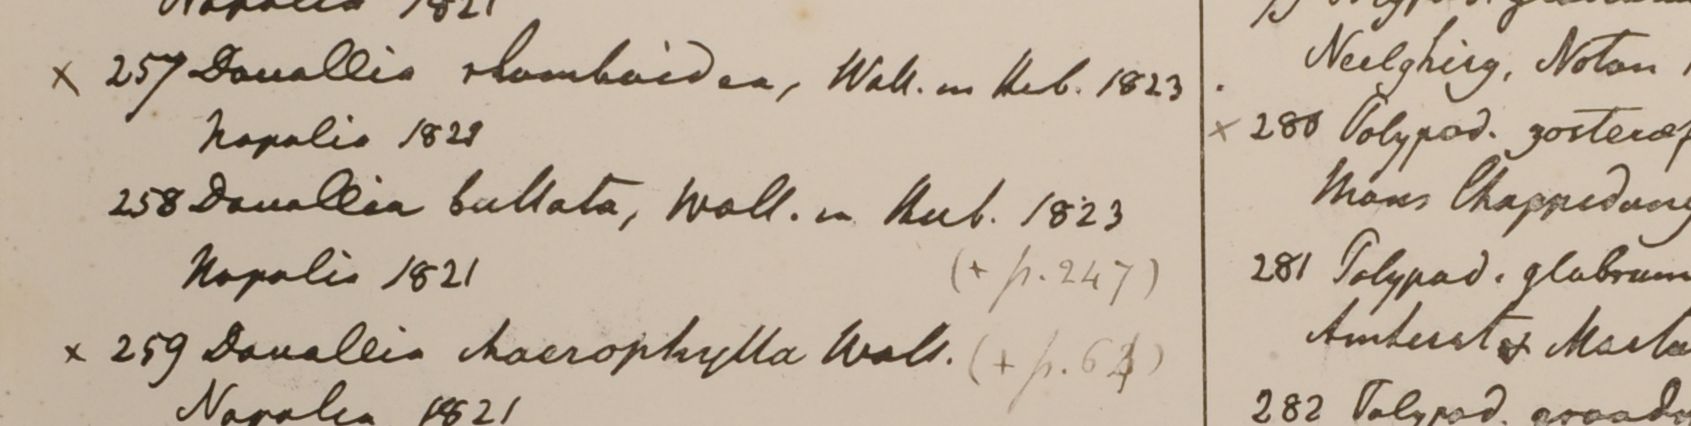 Napalia 1821
× 257 Davallia rhomboidea, Wall. in Herb. 1823
Napalia 1821
258 Davallia bullata, Wall. in Herb. 1823
Napalia 1821 (+ p. 247)
× 259 Davallia chaerophylla Wall. (+ p. 62)
Napalia 1821
Neelghirg, Noton
× 280 Polypod. zosteræf
Mons Chappedong
281 Polypod. glabrum
Amherst & Marta
282 Polypod.